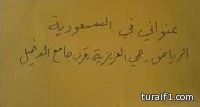 عنواني في السعودية
الرياض - حي العزيزية قرب جامع الدخيل
turaif1.com